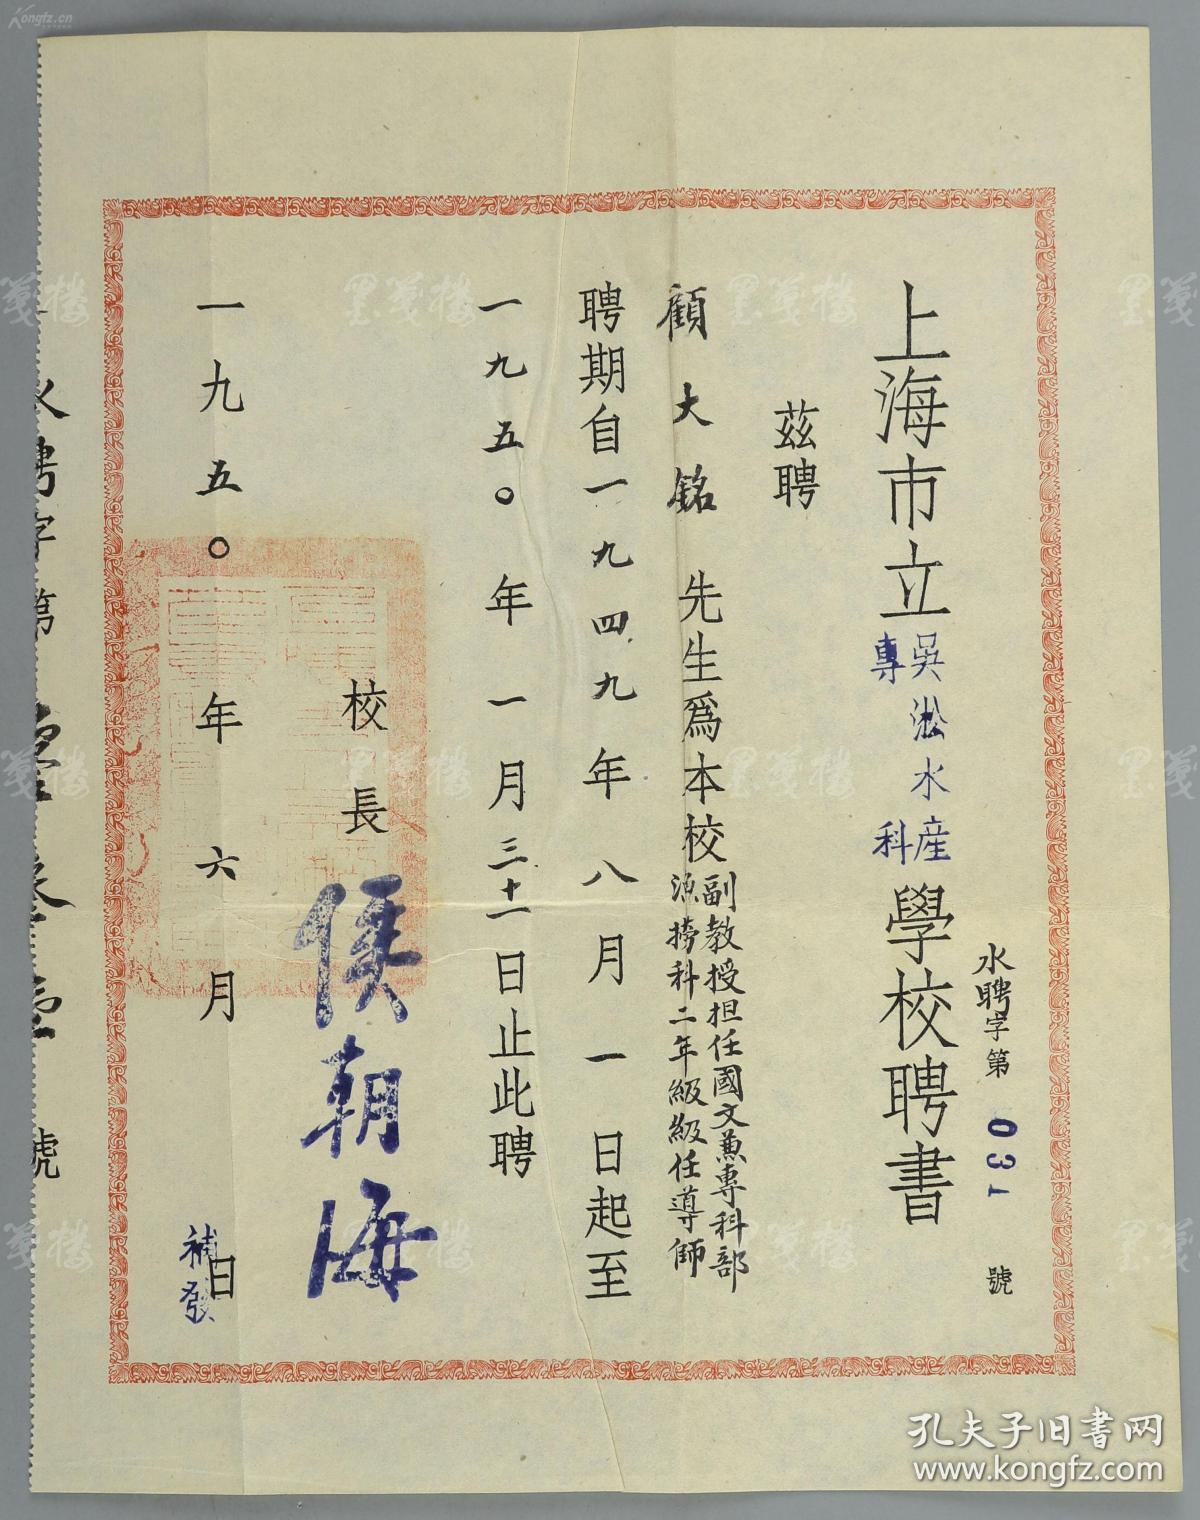 上海市立吳淞水產專科學校聘書
水聘字第031號
茲聘
顧大銘先生為本校副教授担任國文兼專科部
漁撈科二年級級任導師
聘期自一九四九年八月一日起至
一九五〇年一月三十一日止此聘
校長侯朝海
一九五〇年六月日
補發
水聘字第
號
孔夫子旧书网
www.kongfz.com
Kongfz.cn
墨笺楼